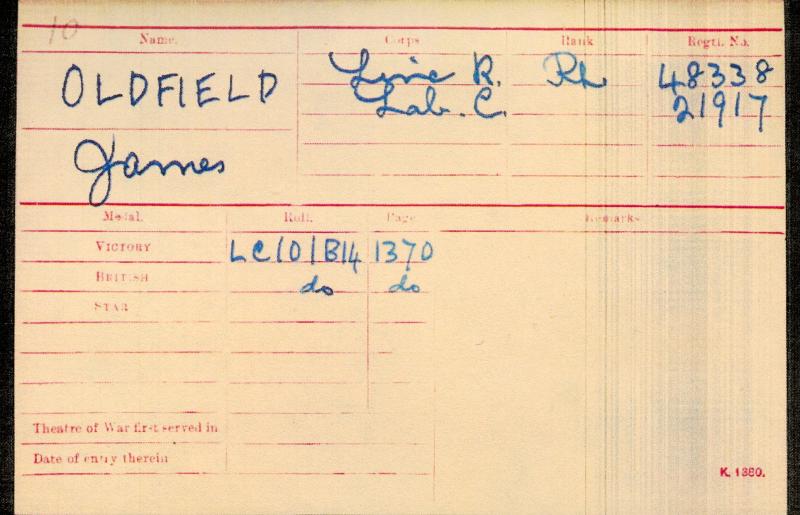 10
Name. Corps Rank Regtl. No.
OLDFIELD Linc R. Pte 48338
James Lab. C. 21917
Medal. Roll. Page. Remarks
VICTORY LC/O/B14 1370
BRITISH do do
STAR
Theatre of War first served in
Date of entry therein
K. 1380.